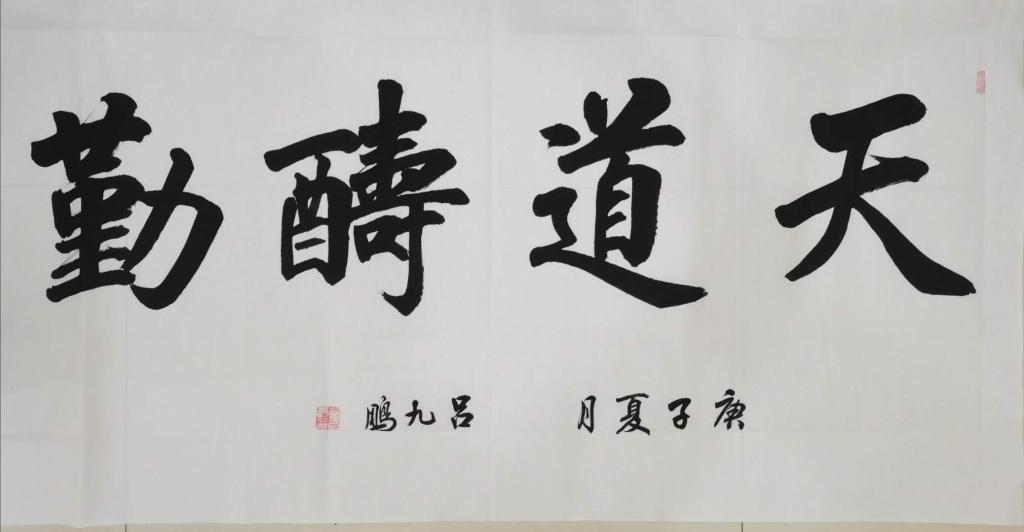 天道酬勤
庚子夏月 吕九鹏